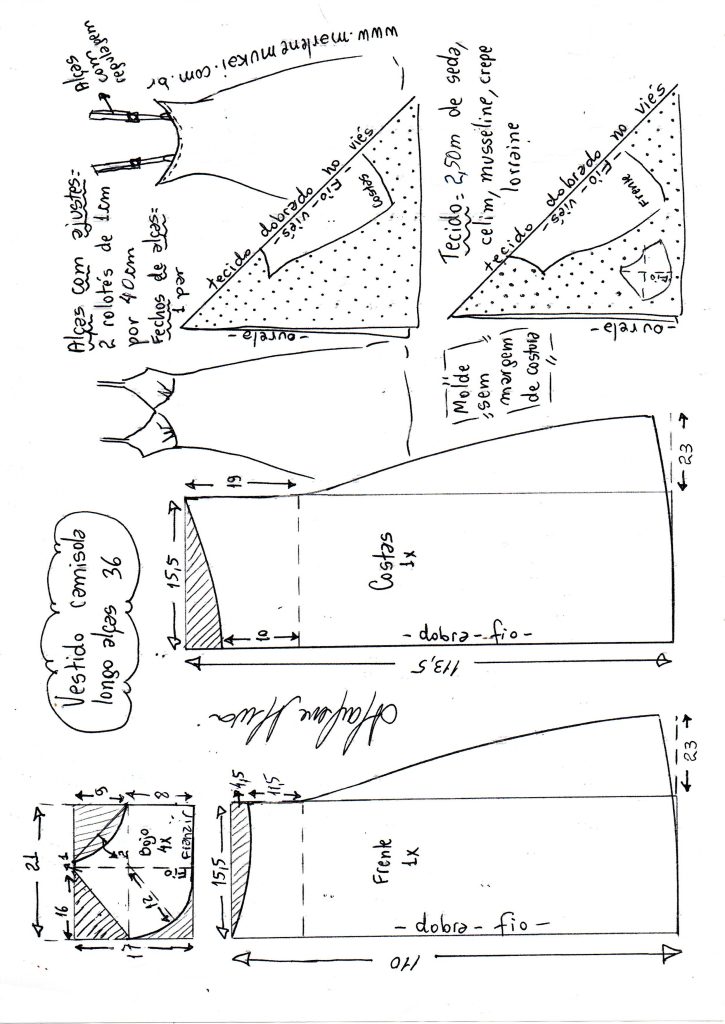 Vestido camisola
longo alças 36
Alças com ajustes=
2 rolotés de 1cm
por 40cm
Fechos de alças=
1 par
Alças
com
regulagem
www.marlenemukai.com.br
Tecido= 2,50m de seda,
cetim, musseline, crepe
lorraine
tecido dobrado no viés
Fio-viés-
Costas
-ourela-
tecido dobrado no viés
Fio-viés-
Frente
Fio
-ourela-
Molde
sem
margem
de costura
21
16
1
9
8
2
12
17
Bojo
4x
Fio
Franzir
15,5
1,5
11,5
Frente
1x
-dobra-fio-
110
23
15,5
19
10
Costas
1x
-dobra-fio-
113,5
23
Marlene Mukai